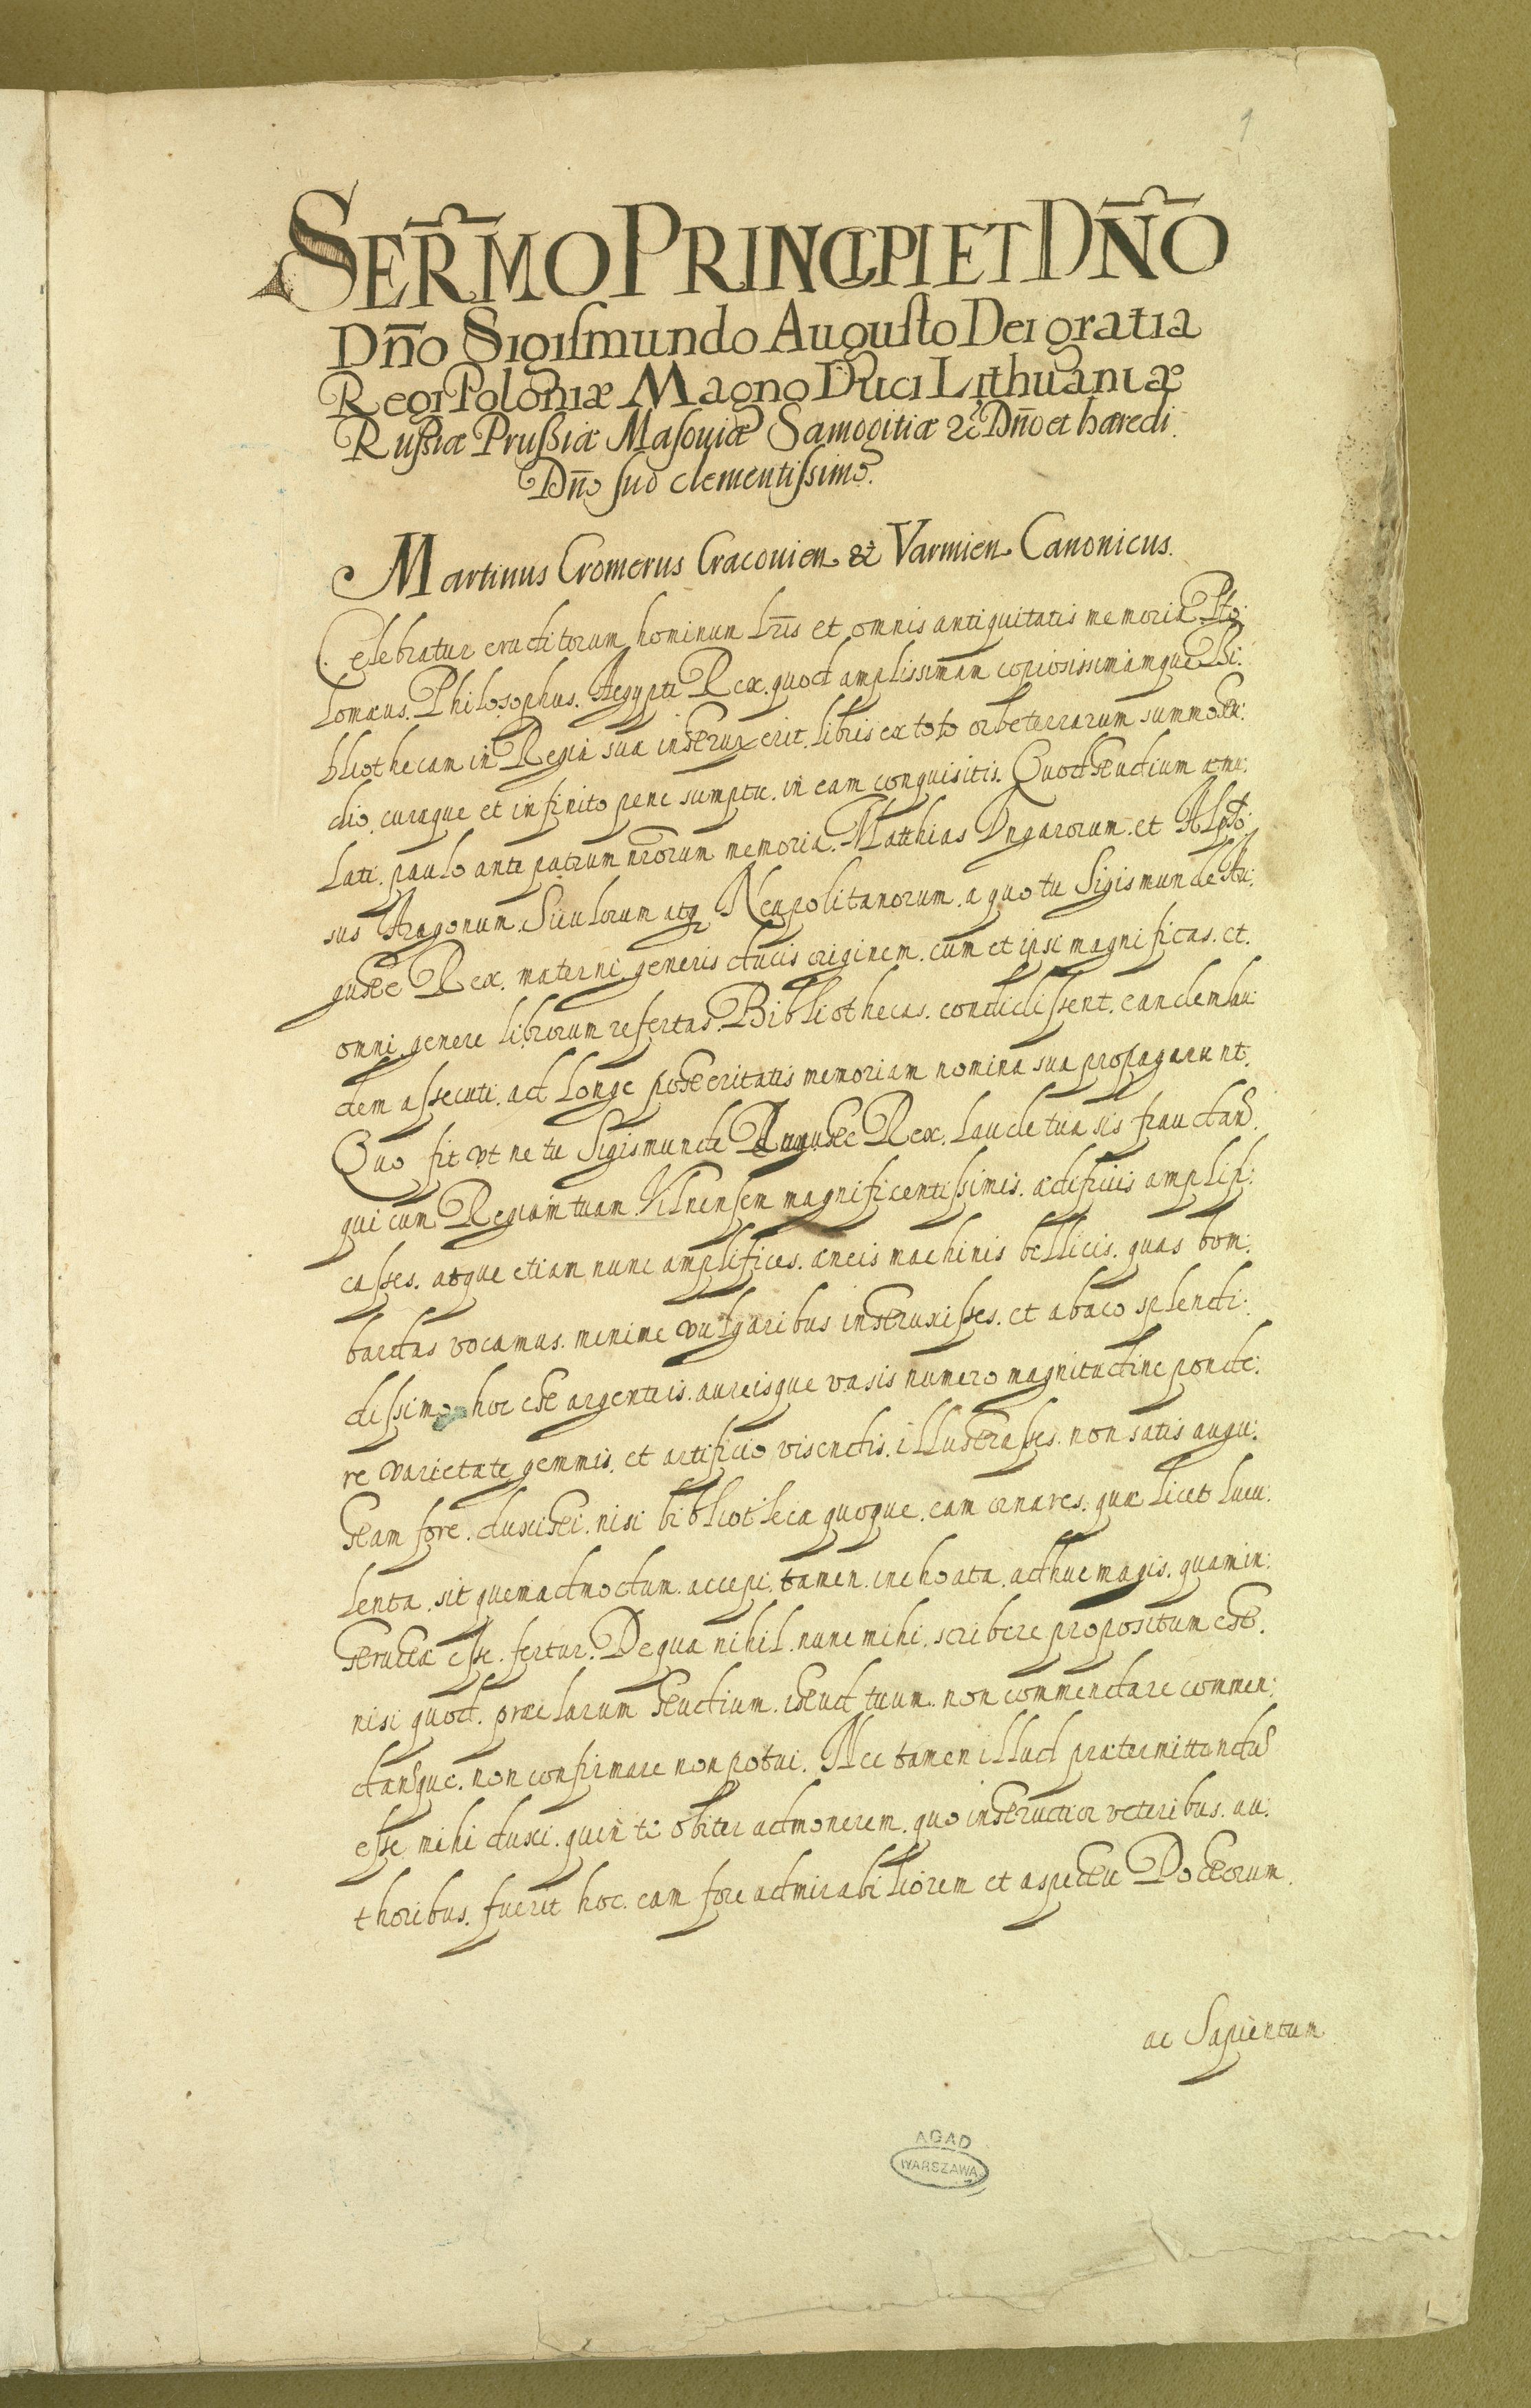 1
SER̃MO PRINCIPI ET DÑO
Dño Sigiſmundo Auguſto Dei gratia
Regi Poloniæ Magno Duci Lithuaniæ
Ruſsiæ Pruſsiæ Maſoviæ Samogitiæ &c̃ Dño et hæredi
Dño ſuo clementiſsimo.
Martinus Cromerus Cracovien & Varmien Canonicus.
Celebratur eruditorum hominum lr̃is et omnis antiquitatis memoria Pto:
lomæus. Philosophus. Aegypti Rex. quod amplissimam copiosissimamque Bi:
bliothecam in Regia sua instruxerit. libris ex toto orbe terrarum summo stu:
dio. curaque et infinito pene sumptu. in eam conquisitis. Quod studium æmu:
lati. paulo ante patrum nr̃orum memoria. Matthias Vngarorum. et Alphõ:
sus Aragonum. Siculorum atq Neapolitanorum. a quo tu Sigismunde Au:
guste Rex. materni generis ducis originem. cum et ipsi magnificas. et.
omni genere librorum refertas. Bibliothecas. condidiſsent. eandem lau:
dem aſsecuti. ad longe posteritatis memoriam nomina sua propagarunt.
Quo fit vt ne tu Sigismunde Auguste Rex. laude tua sis fraudand9.
qui cum Regiam tuam Vilnensem magnificentiſsimis. ædificiis amplifi:
caſses. atque etiam nunc amplifices. æneis machinis bellicis. quas bom:
bardas vocamus. minime vulgaribus instruxiſses. et abaco splendi:
diſsimo hoc est argenteis. aureisque vasis numero magnitudine ponde:
re varietate gemmis. et artificio visendis. illustraſses. non satis augu:
stam fore. duxisti. nisi bibliotheca quoque. eam ornares. quæ licet lucu:
lenta. sit quemadmodum. accepi. tamen. inchoata. adhuc magis. quam in:
structa eſse. fertur. De qua nihil. nunc mihi. scribere propositum est.
nisi quod. præclarum studium. istud tuum. non commendare commen:
dansque. non confirmare non potui. Nec tamen illud prætermittendũ
eſse mihi duxi. quin te obiter admonerem. quo instructior veteribus. au:
thoribus. fuerit hoc. eam fore admirabiliorem et aspectu Doctorum.
ac Sapientum
AGAD
WARSZAWA